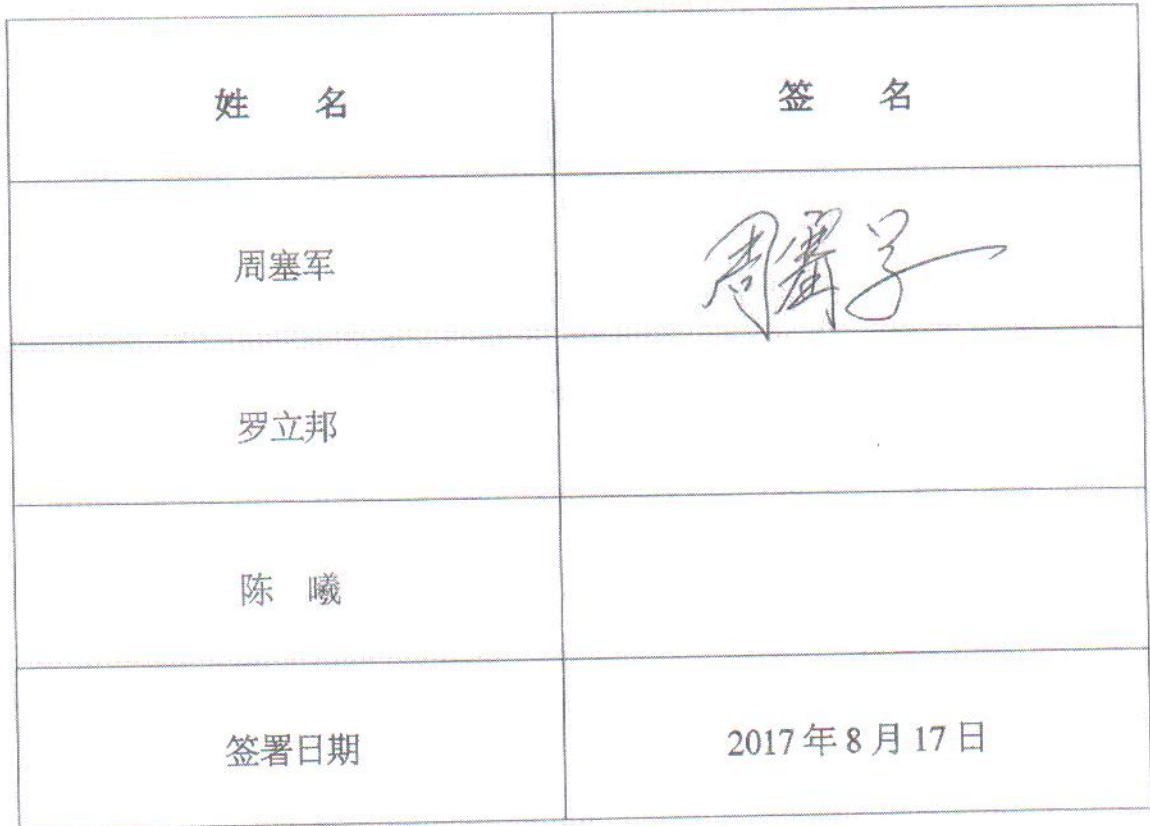 姓 名 签 名
周塞军 周塞军
罗立邦
陈 曦
签署日期 2017年8月17日